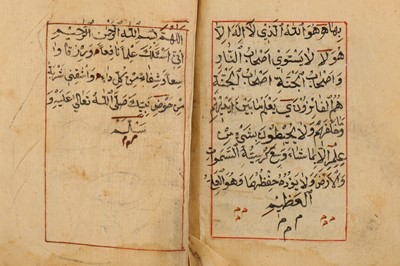 هو الله الذي لا اله الا
هو لا يستوى اصحاب النار
واصحاب الجنة اصحاب الجنة
هم الفائزون يعلم ما بين ايديهم
وما خلفهم ولا يحيطون بشيء من
علمه الا بما شاء وسع كرسيه السموات
والارض ولا يؤده حفظهما وهو العلي
العظيم
م م م
اللهم بسم الله الرحمن الرحيم
انى اسئلك علما نافعا ورزقا و
سعا وشفاء من كل داء واسقني شربة
من حوض نبيك صلى الله تعالى عليه و
سلم
م م م